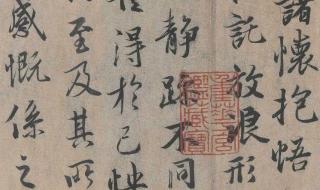 諸懷抱悟
託放浪形
靜躁不同
得於己怏
至及其所
感慨係之